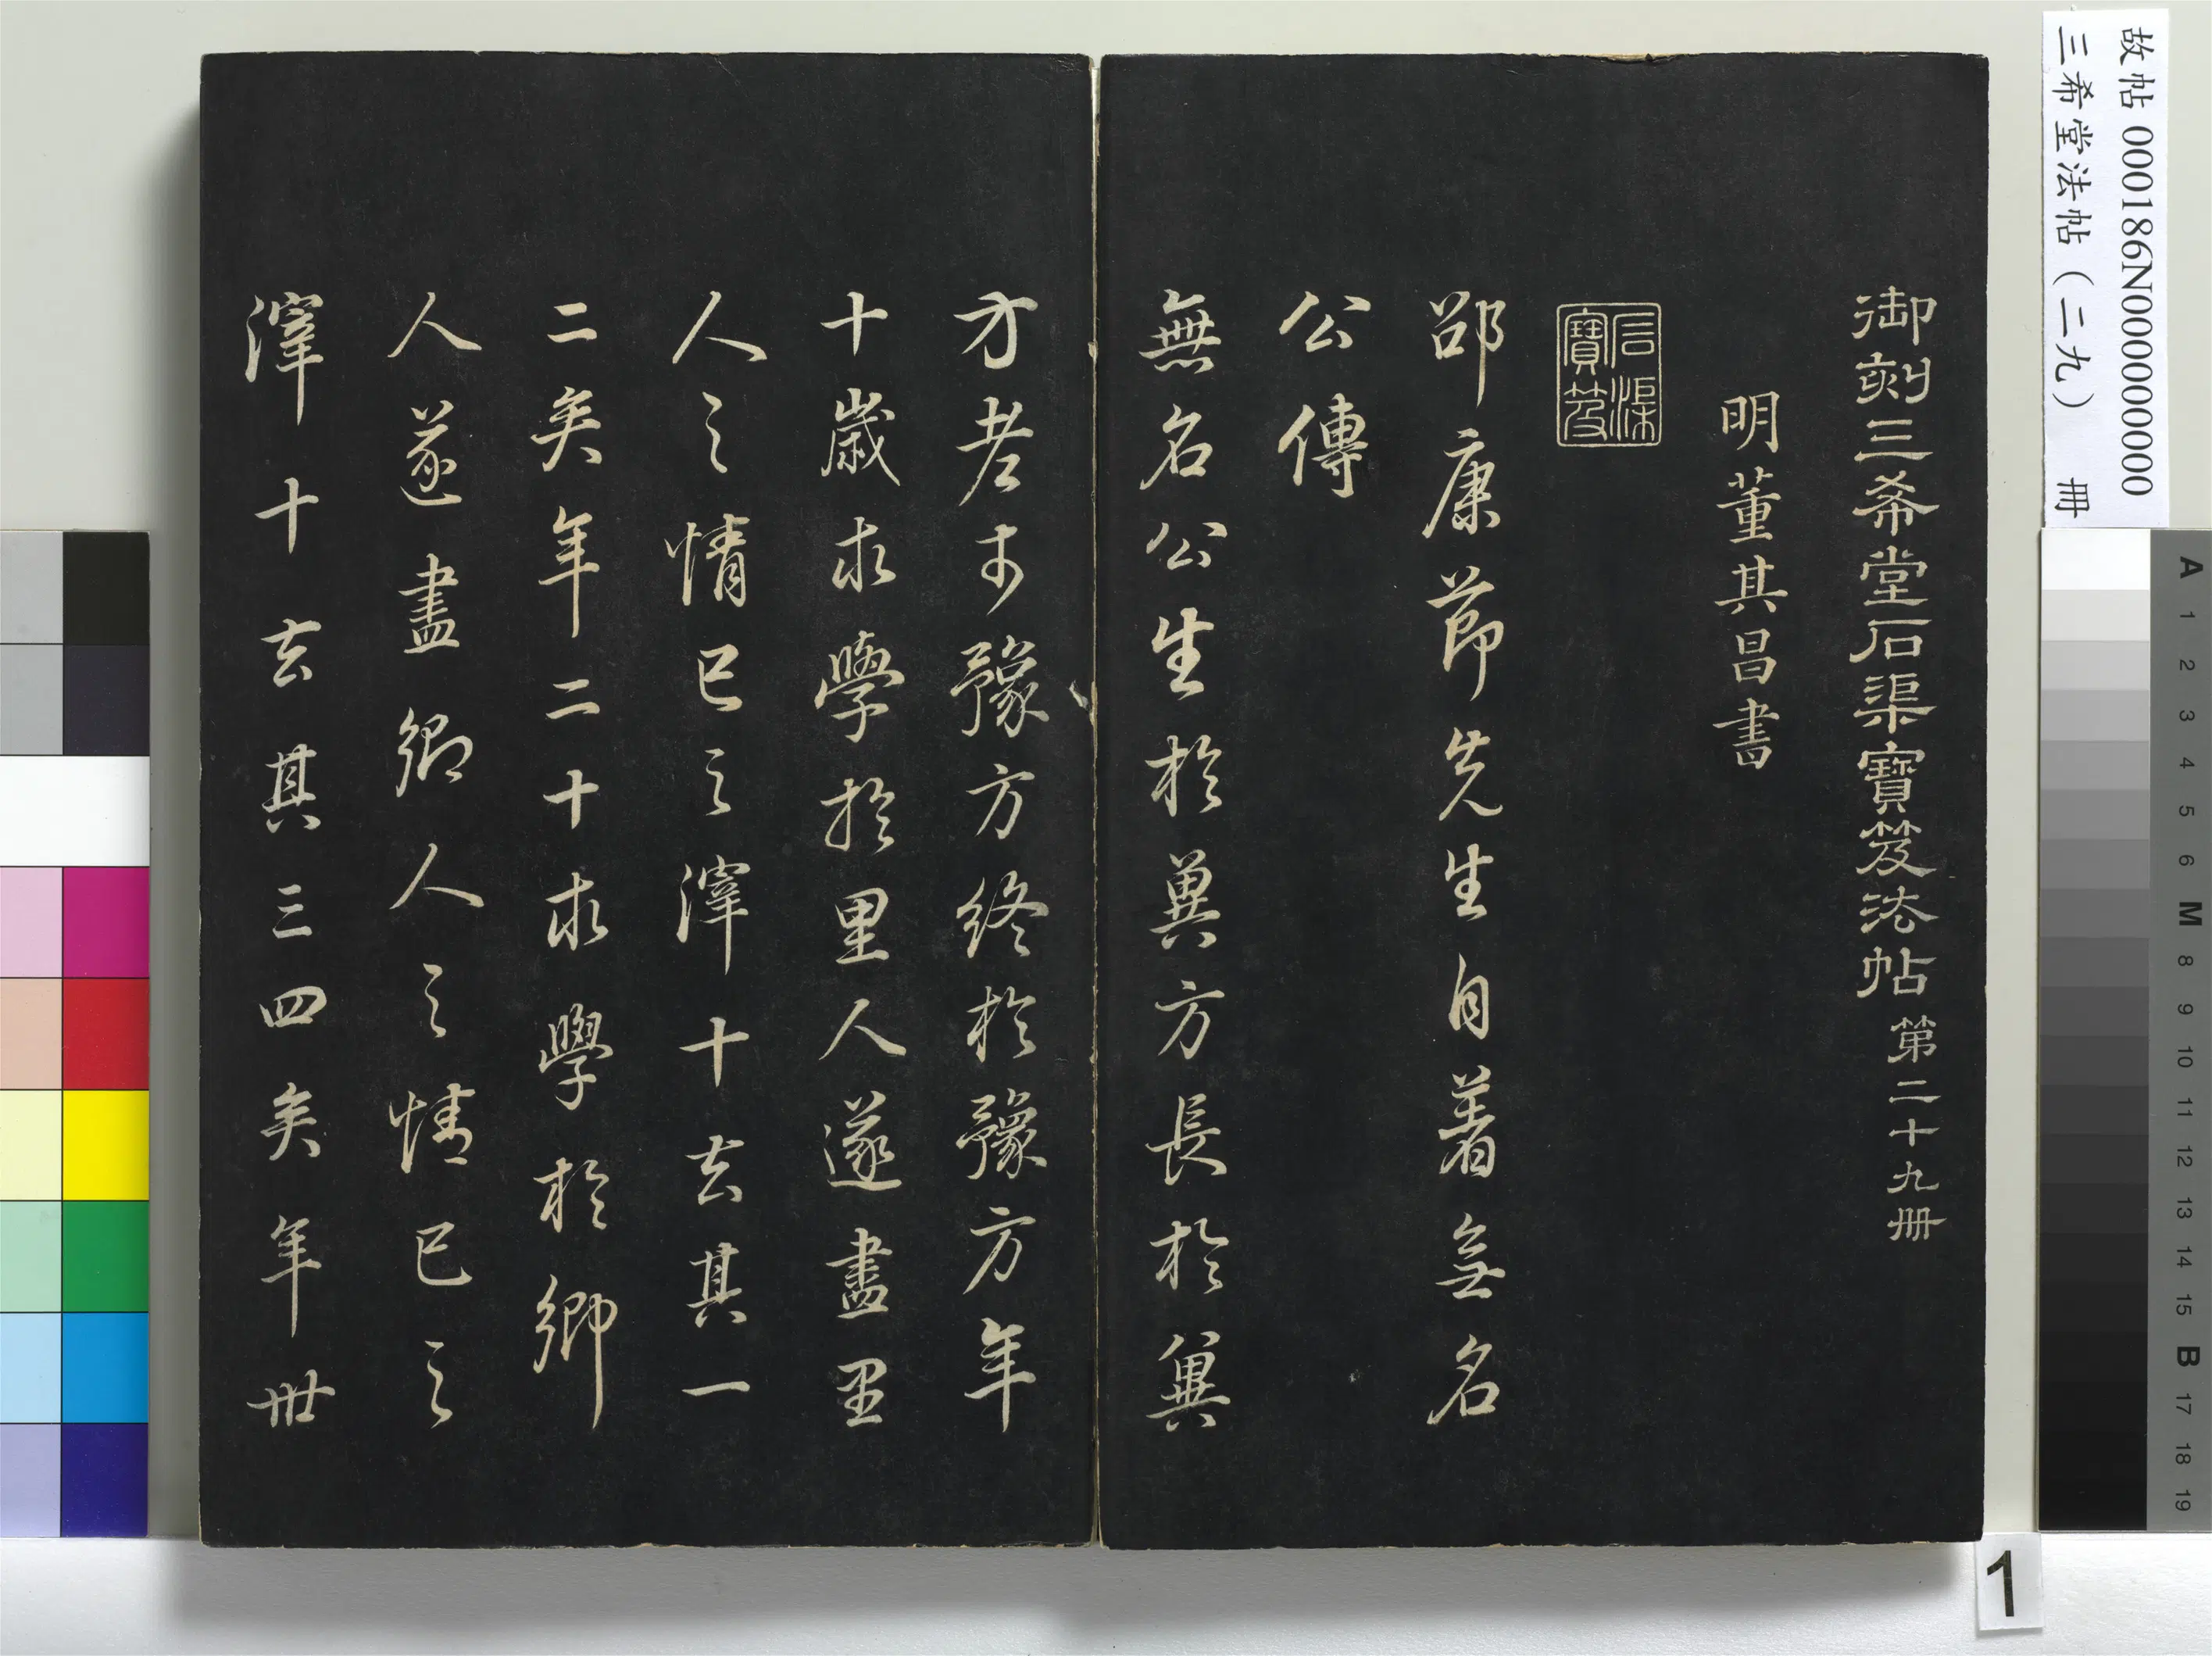 故帖 000186N000000000
三希堂法帖（二九） 冊
御刻三希堂石渠寶笈法帖第二十九冊
明董其昌書
石渠寶笈
邵康節先生自著無名
公傳
無名公生於冀方長於冀
方老於豫方終於豫方年
十歲求學於里人遂盡里
人之情已之滓十去其一
二矣年二十求學於鄉
人遂盡鄉人之情已之
滓十去其三四矣年卅
A 1 2 3 4 5 6 M 8 9 10 11 12 13 14 15 B 17 18 19
1